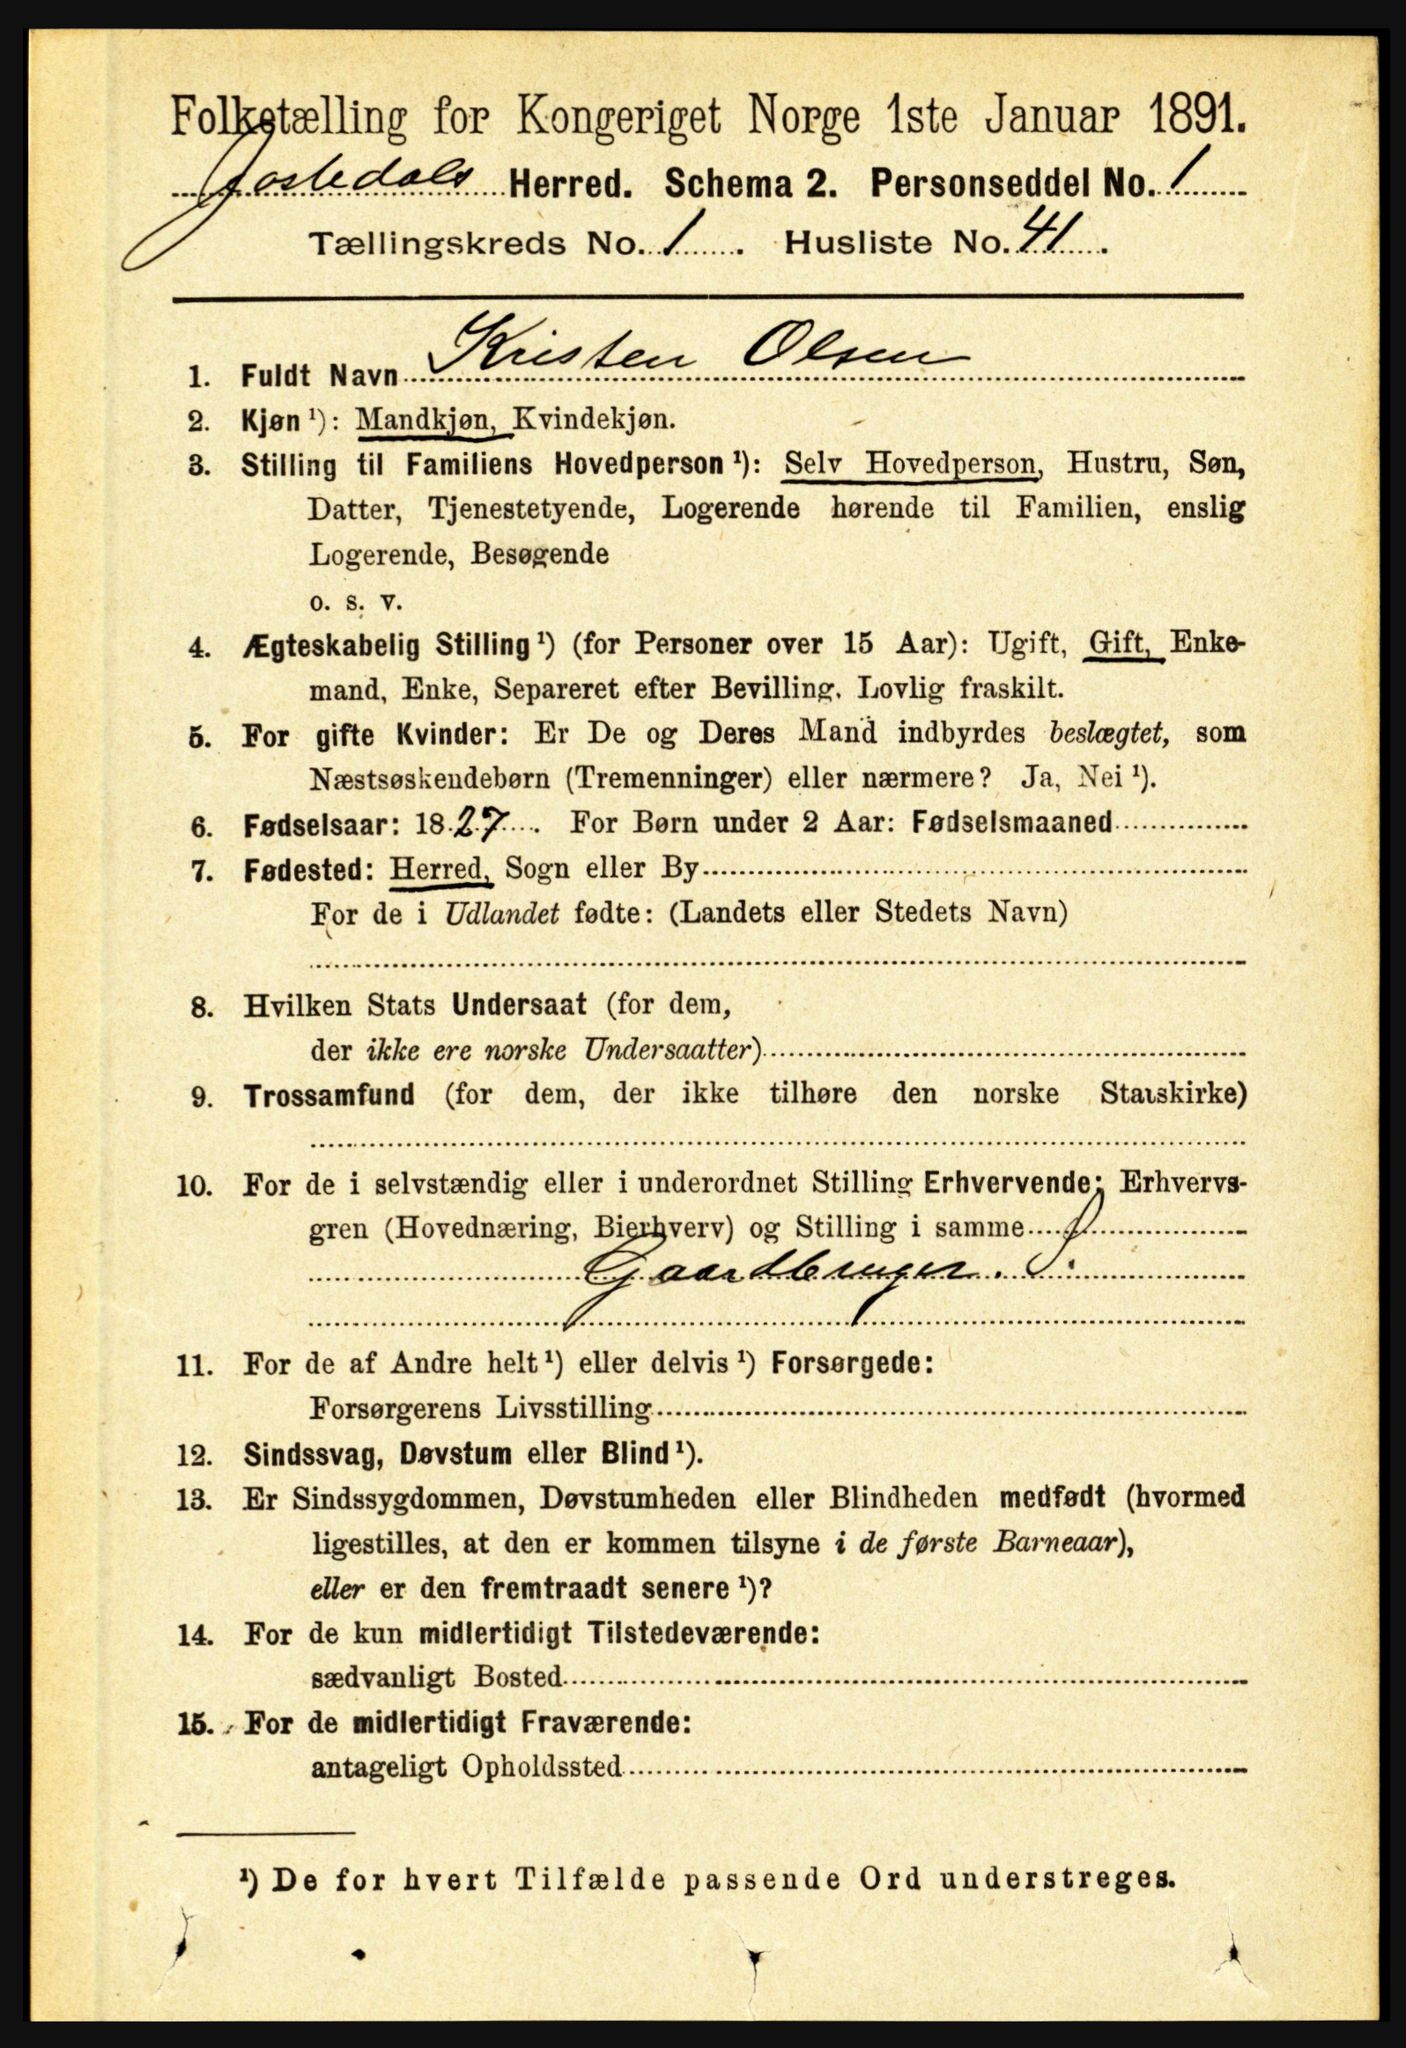 Folketælling for Kongeriget Norge 1ste Januar 1891.
Jostedals Herred. Schema 2. Personseddel No. 1
Tællingskreds No. 1. Husliste No. 41.
1. Fuldt Navn Kristen Olsen
2. Kjøn ¹): Mandkjøn, Kvindekjøn.
3. Stilling til Familiens Hovedperson ¹): Selv Hovedperson, Hustru, Søn,
Datter, Tjenestetyende, Logerende hørende til Familien, enslig
Logerende, Besøgende
o. s. v.
4. Ægteskabelig Stilling ¹) (for Personer over 15 Aar): Ugift, Gift, Enke-
mand, Enke, Separeret efter Bevilling. Lovlig fraskilt.
5. For gifte Kvinder: Er De og Deres Mand indbyrdes beslægtet, som
Næstsøskendebørn (Tremenninger) eller nærmere? Ja, Nei ¹).
6. Fødselsaar: 1827. For Børn under 2 Aar: Fødselsmaaned
7. Fødested: Herred, Sogn eller By
For de i Udlandet fødte: (Landets eller Stedets Navn)
8. Hvilken Stats Undersaat (for dem,
der ikke ere norske Undersaatter)
9. Trossamfund (for dem, der ikke tilhøre den norske Statskirke)
10. For de i selvstændig eller i underordnet Stilling Erhvervende: Erhvervs-
gren (Hovednæring, Bierhverv) og Stilling i samme
Gaardbruger. S.
11. For de af Andre helt ¹) eller delvis ¹) Forsørgede:
Forsørgerens Livsstilling
12. Sindssvag, Døvstum eller Blind ¹).
13. Er Sindssygdommen, Døvstumheden eller Blindheden medfødt (hvormed
ligestilles, at den er kommen tilsyne i de første Barneaar),
eller er den fremtraadt senere ¹)?
14. For de kun midlertidigt Tilstedeværende:
sædvanligt Bosted
15. For de midlertidigt Fraværende:
antageligt Opholdssted
¹) De for hvert Tilfælde passende Ord understreges.